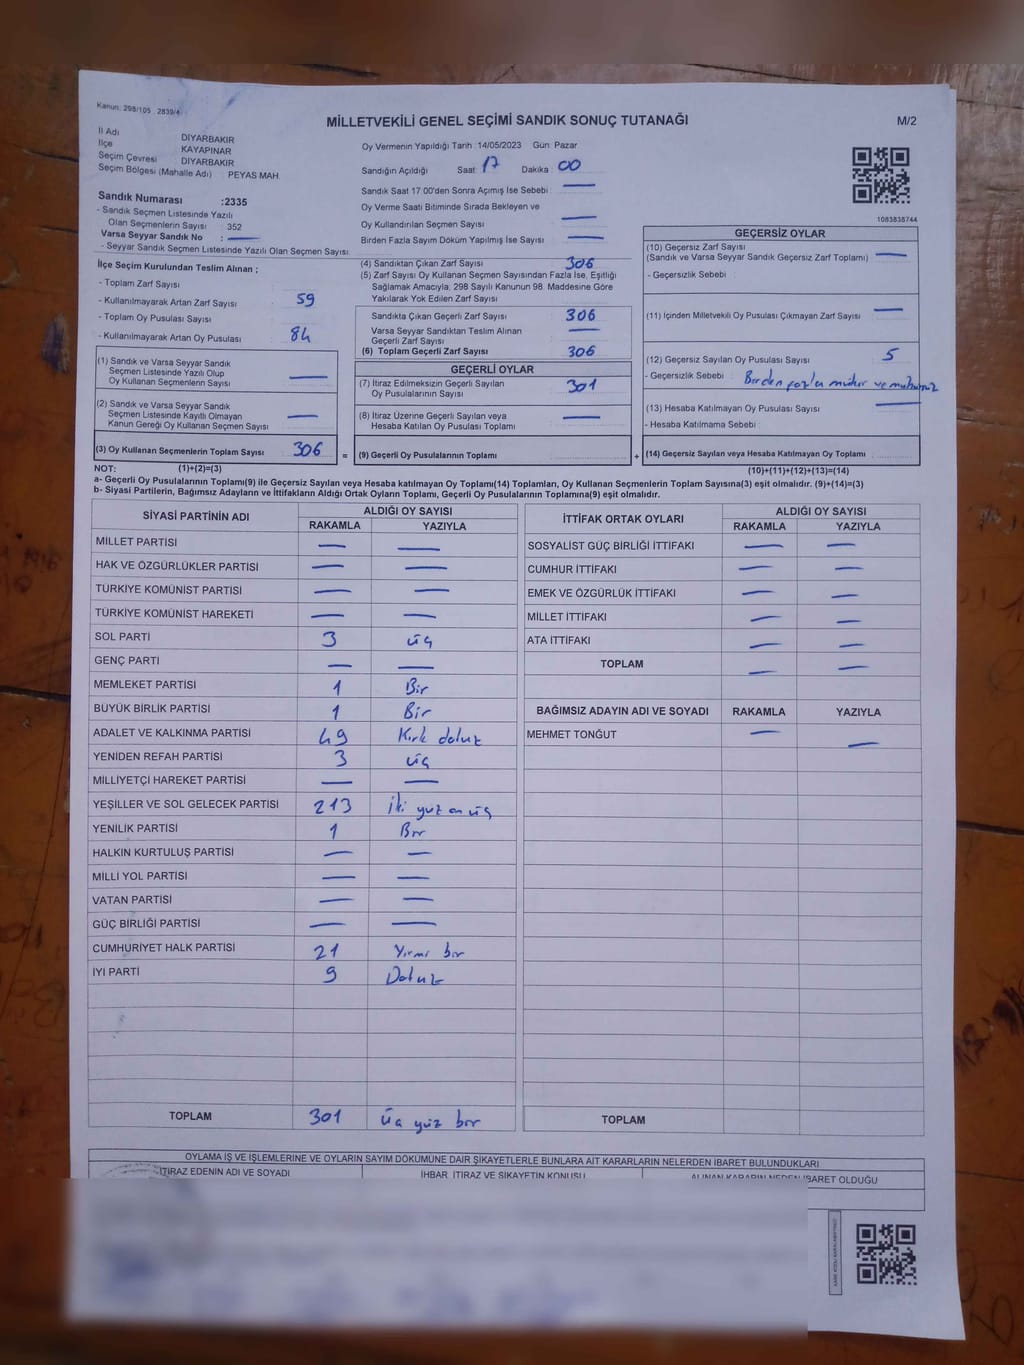 Kanun: 298/105 2839/4
MİLLETVEKİLİ GENEL SEÇİMİ SANDIK SONUÇ TUTANAĞI
M/2
İl Adı DİYARBAKIR
İlçe KAYAPINAR
Seçim Çevresi DİYARBAKIR
Seçim Bölgesi (Mahalle Adı) PEYAS MAH.
Sandık Numarası :2335
- Sandık Seçmen Listesinde Yazılı
Olan Seçmenlerin Sayısı 352
Varsa Seyyar Sandık No : —
- Seyyar Sandık Seçmen Listesinde Yazılı Olan Seçmen Sayısı
İlçe Seçim Kurulundan Teslim Alınan ;
- Toplam Zarf Sayısı
- Kullanılmayarak Artan Zarf Sayısı 59
- Toplam Oy Pusulası Sayısı
- Kullanılmayarak Artan Oy Pusulası 84
(1) Sandık ve Varsa Seyyar Sandık
Seçmen Listesinde Yazılı Olup
Oy Kullanan Seçmenlerin Sayısı —
(2) Sandık ve Varsa Seyyar Sandık
Seçmen Listesinde Kayıtlı Olmayan
Kanun Gereği Oy Kullanan Seçmen Sayısı —
(3) Oy Kullanan Seçmenlerin Toplam Sayısı 306
Oy Vermenin Yapıldığı Tarih :14/05/2023 Gün: Pazar
Sandığın Açıldığı Saat: 17 Dakika: 00
Sandık Saat 17 00'den Sonra Açımış İse Sebebi : —
Oy Verme Saati Bitiminde Sırada Bekleyen ve
Oy Kullandırılan Seçmen Sayısı : —
Birden Fazla Sayım Döküm Yapılmış İse Sayısı : —
(4) Sandıktan Çıkan Zarf Sayısı 306
(5) Zarf Sayısı Oy Kullanan Seçmen Sayısından Fazla İse, Eşitliği
Sağlamak Amacıyla, 298 Sayılı Kanunun 98. Maddesine Göre
Yakılarak Yok Edilen Zarf Sayısı
Sandıkta Çıkan Geçerli Zarf Sayısı 306
Varsa Seyyar Sandıktan Teslim Alınan
Geçerli Zarf Sayısı —
(6) Toplam Geçerli Zarf Sayısı 306
GEÇERLİ OYLAR
(7) İtiraz Edilmeksizin Geçerli Sayılan
Oy Pusulalarının Sayısı 301
(8) İtiraz Üzerine Geçerli Sayılan veya
Hesaba Katılan Oy Pusulası Toplamı —
= (9) Geçerli Oy Pusulalarının Toplamı
1083838744
GEÇERSİZ OYLAR
(10) Geçersiz Zarf Sayısı
(Sandık ve Varsa Seyyar Sandık Geçersiz Zarf Toplamı) —
- Geçersizlik Sebebi :
(11) İçinden Milletvekili Oy Pusulası Çıkmayan Zarf Sayısı —
(12) Geçersiz Sayılan Oy Pusulası Sayısı 5
- Geçersizlik Sebebi : Birden fazla mühür ve
(13) Hesaba Katılmayan Oy Pusulası Sayısı —
- Hesaba Katılmama Sebebi :
+ (14) Geçersiz Sayılan veya Hesaba Katılmayan Oy Toplamı
NOT: (1)+(2)=(3) (10)+(11)+(12)+(13)=(14)
a- Geçerli Oy Pusulalarının Toplamı(9) ile Geçersiz Sayılan veya Hesaba katılmayan Oy Toplamı(14) Toplamları, Oy Kullanan Seçmenlerin Toplam Sayısına(3) eşit olmalıdır. (9)+(14)=(3)
b- Siyasi Partilerin, Bağımsız Adayların ve İttifakların Aldığı Ortak Oyların Toplamı, Geçerli Oy Pusulalarının Toplamına(9) eşit olmalıdır.
SİYASİ PARTİNİN ADI ALDIĞI OY SAYISI
RAKAMLA YAZIYLA
MİLLET PARTİSİ — —
HAK VE ÖZGÜRLÜKLER PARTİSİ — —
TÜRKİYE KOMÜNİST PARTİSİ — —
TÜRKİYE KOMÜNİST HAREKETİ — —
SOL PARTİ 3 üç
GENÇ PARTİ — —
MEMLEKET PARTİSİ 1 Bir
BÜYÜK BİRLİK PARTİSİ 1 Bir
ADALET VE KALKINMA PARTİSİ 49 Kırk dokuz
YENİDEN REFAH PARTİSİ 3 üç
MİLLİYETÇİ HAREKET PARTİSİ — —
YEŞİLLER VE SOL GELECEK PARTİSİ 213 İki yüz on üç
YENİLİK PARTİSİ 1 Bir
HALKIN KURTULUŞ PARTİSİ — —
MİLLİ YOL PARTİSİ — —
VATAN PARTİSİ — —
GÜÇ BİRLİĞİ PARTİSİ — —
CUMHURİYET HALK PARTİSİ 21 Yirmi bir
İYİ PARTİ 9 Dokuz
TOPLAM 301 üç yüz bir
İTTİFAK ORTAK OYLARI ALDIĞI OY SAYISI
RAKAMLA YAZIYLA
SOSYALİST GÜÇ BİRLİĞİ İTTİFAKI — —
CUMHUR İTTİFAKI — —
EMEK VE ÖZGÜRLÜK İTTİFAKI — —
MİLLET İTTİFAKI — —
ATA İTTİFAKI — —
TOPLAM — —
BAĞIMSIZ ADAYIN ADI VE SOYADI RAKAMLA YAZIYLA
MEHMET TONĞUT — —
TOPLAM
OYLAMA İŞ VE İŞLEMLERİNE VE OYLARIN SAYIM DÖKÜMÜNE DAİR ŞİKAYETLERLE BUNLARA AİT KARARLARIN NELERDEN İBARET BULUNDUKLARI
İTİRAZ EDENİN ADI VE SOYADI İHBAR, İTİRAZ VE ŞİKAYETİN KONUSU ALINAN KARARIN NEDEN İBARET OLDUĞU